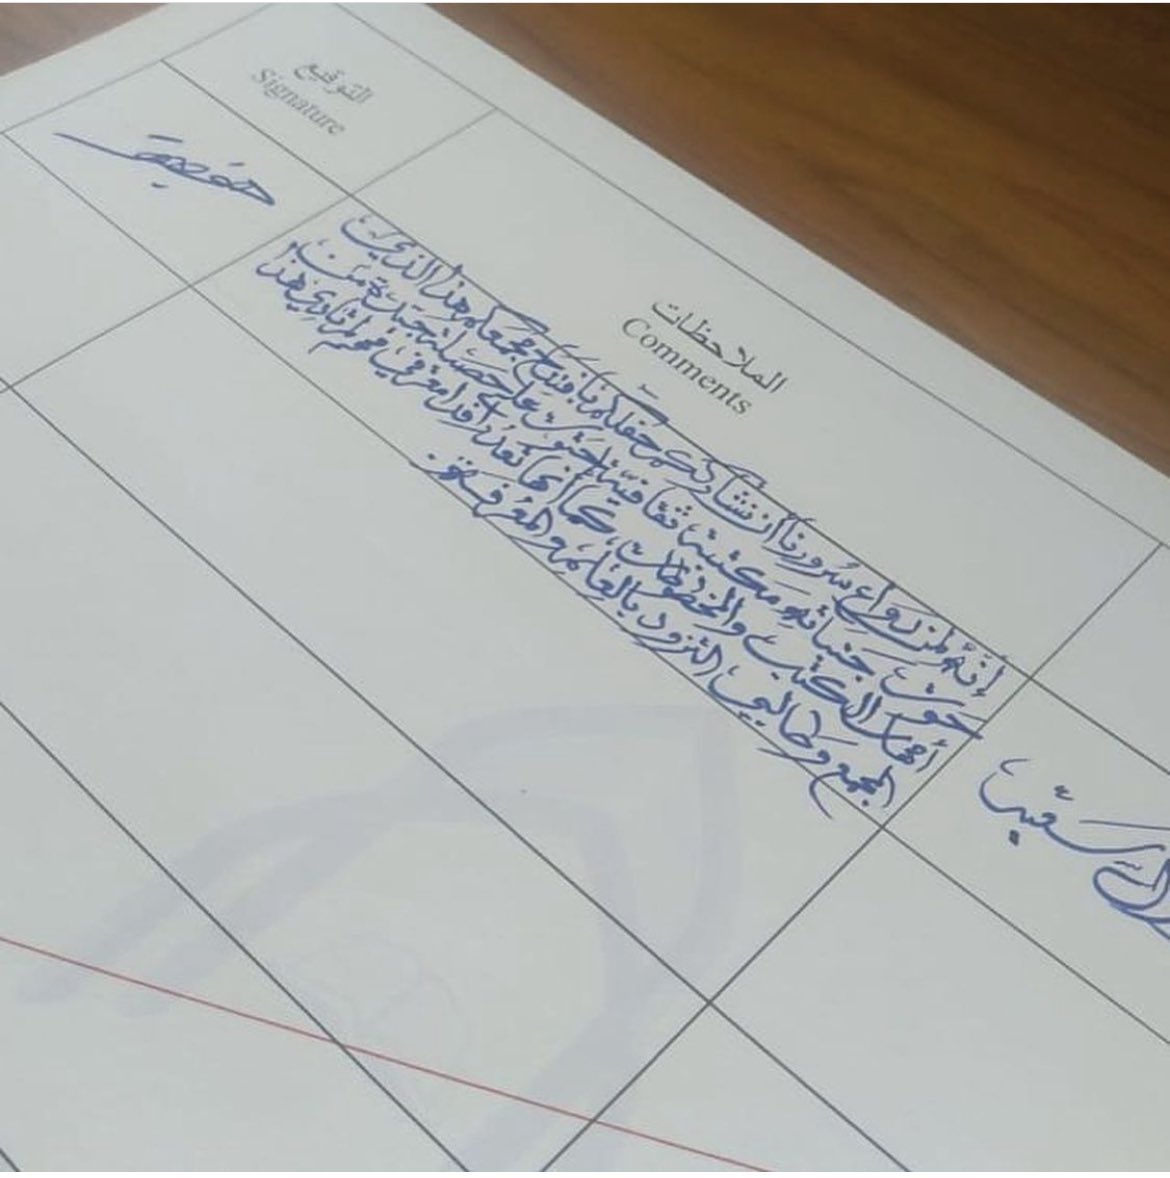 التوقيع
Signature
الملاحظات
Comments
إنه لمن دواعي سرورنا أن نشارككم حفلكم بافتتاح مجمعكم هذا الذي
حوت جنباته مكتبة ثقافية احتوت على حصيلة جيدة من
أمهات الكتب والمخطوطات، كما أنها تعد رافدا معرفي مهم لمرتادي هذا
المجمع وطالبي التزود بالعلم والمعرفة.